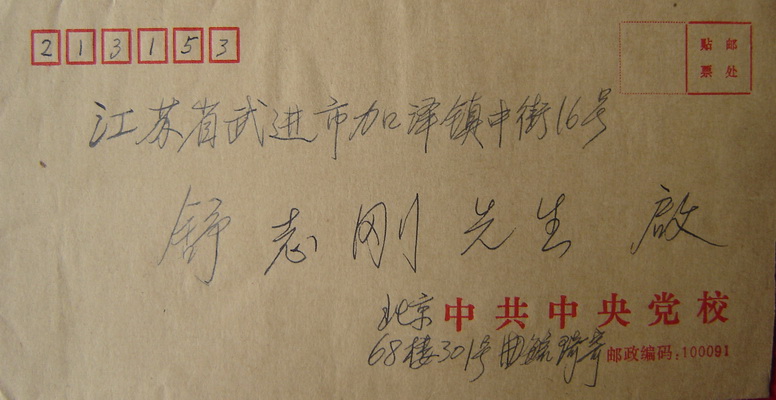 213153
贴邮
票处
江苏省武进市加泽镇中街16号
舒志刚先生 啟
北京 中共中央党校
68楼301号 曲毓琦寄 邮政编码:100091